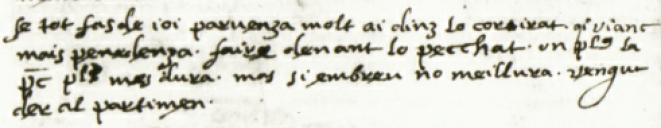 se tot fas de ioi paruenza molt ai dinz lo cor irat. qi uianc
mais penedenza. faire denant lo pecchat. on pl9 la
pc pl9 mes dura. mas si em breu no meillura. uengut
der al partimen.